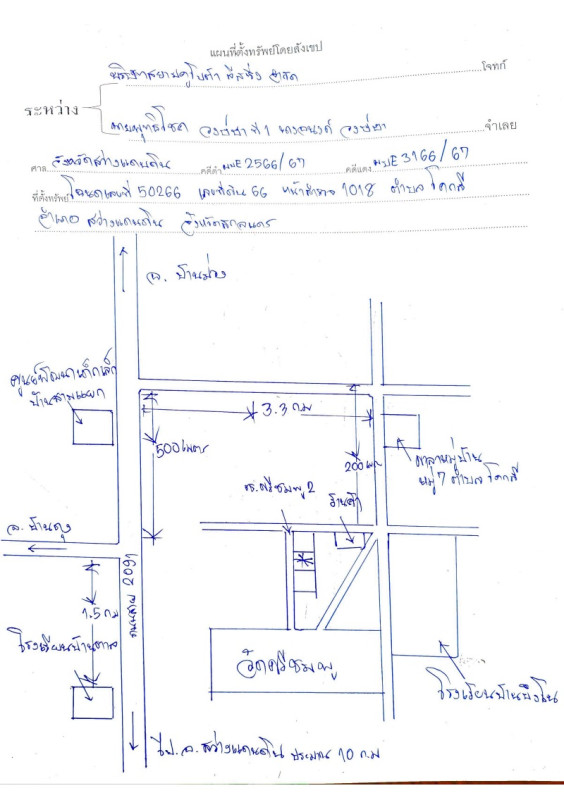 แผนที่ตั้งทรัพย์โดยสังเขป
โตโยต้า ลีสซิ่ง โจทก์
ระหว่าง
ที่ 1 จำเลย
ศาล จังหวัดสว่างแดนดิน คดีดำ ผบE 2566/67 คดีแดง ผบE 3166/67
ที่ตั้งทรัพย์ โฉนดเลขที่ 50266 เลขที่ดิน 66 หน้าสำรวจ 1018 ตำบล โคกสี
อำเภอ สว่างแดนดิน จังหวัดสกลนคร
อ. บ้านม่วง
ศูนย์พัฒนาเด็กเล็ก
บ้านสามแยก
3.3 กม
500 เมตร
200 ม
ศาลาหมู่บ้าน
หมู่ 7 ตำบล โคกสี
ซ.ศรีชมพู 2
ร้านค้า
อ. บ้านดุง
ถนนสาย 2091
1.5 กม
วัดศรีชมพู
โรงเรียนบ้านบึงโน
ไป อ. สว่างแดนดิน ประมาณ 10 กม